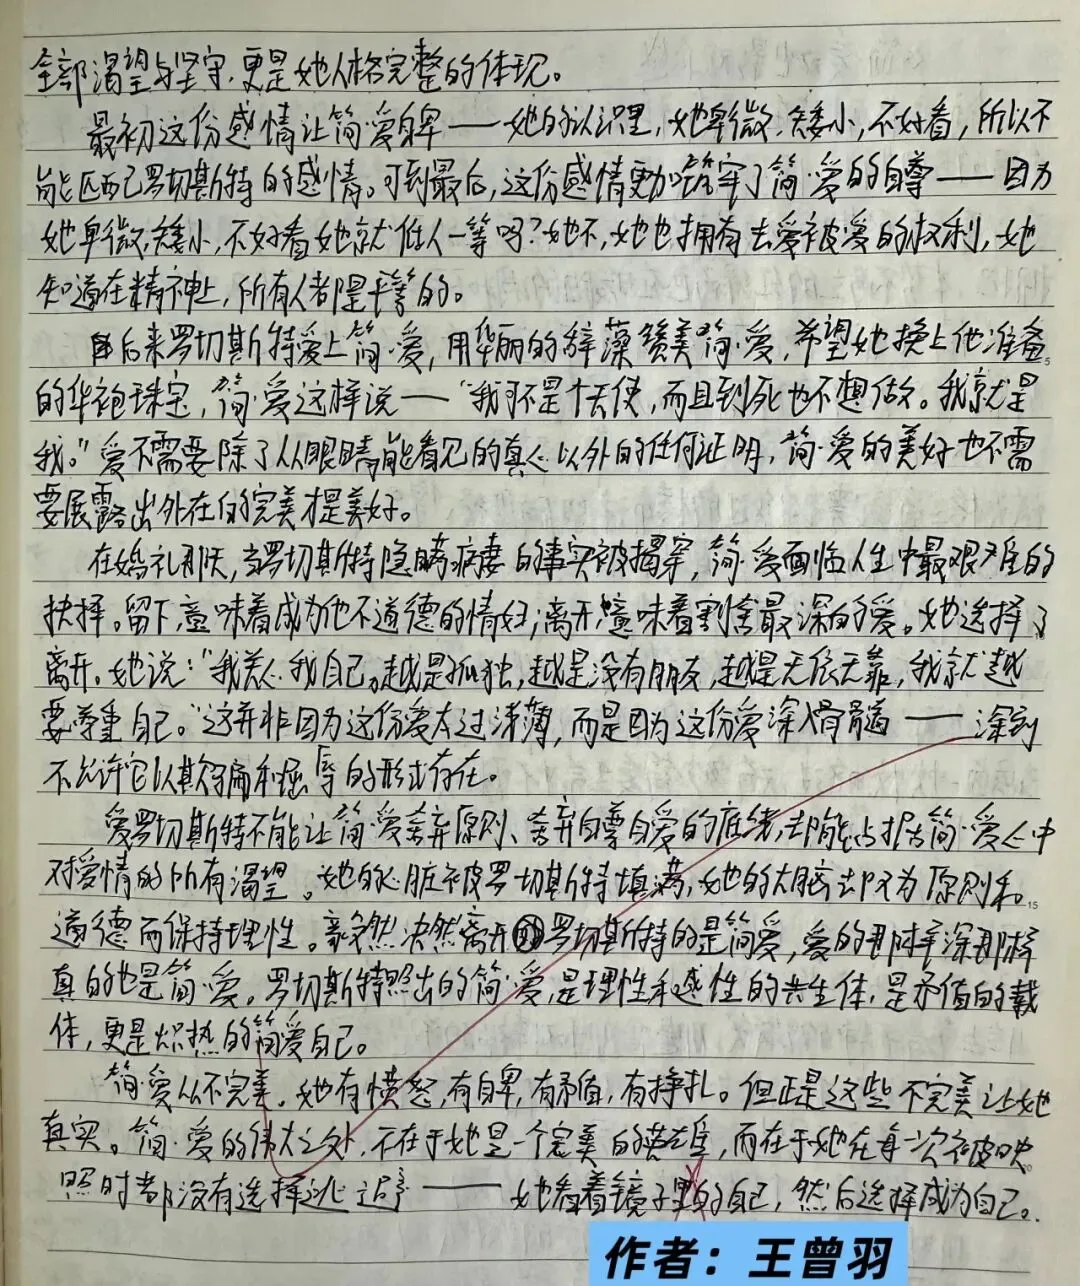 全部渴望与坚守,更是她人格完整的体现。
最初这份感情让简·爱自卑——她的认识里,她卑微,矮小,不好看,所以不
能匹配罗切斯特的感情。可到最后,这份感情更加筑牢了简·爱的自尊——因为
她卑微,矮小,不好看她就低人一等吗?她不,她也拥有去爱被爱的权利,她
知道在精神上,所有人都是平等的。
后来罗切斯特爱上简·爱,用华丽的辞藻赞美简·爱,希望她换上他准备
的华袍珠宝,简·爱这样说——“我不是个天使,而且到死也不想做。我就是
我。”爱不需要除了从眼睛能看见的真心以外的任何证明,简·爱的美好也不需
要展露出外在的完美才是美好。
在婚礼那天,当罗切斯特隐瞒病妻的事实被揭穿,简·爱面临人生中最艰难的
抉择。留下,意味着成为他不道德的情妇;离开,意味着割舍最深的爱。她选择了
离开。她说:“我关心我自己。越是孤独,越是没有朋友,越是无依无靠,我就越
要尊重自己。”这并非因为这份爱太过浅薄,而是因为这份爱深入骨髓——深到
不允许它以欺骗和屈辱的形式存在。
爱罗切斯特不能让简·爱舍弃原则、舍弃自尊自爱的底线,却能占据简·爱心中
对爱情的所有渴望。她的心脏被罗切斯特填满,她的大脑却又为原则和
道德而保持理性。毅然决然离开罗切斯特的是简爱,爱的那样深那样
真的也是简·爱。罗切斯特照出的简·爱,是理性和感性的共生体,是矛盾的载
体,更是炽热的简爱自己。
简·爱从不完美。她有愤怒,有自卑,有矛盾,有挣扎。但正是这些不完美让她
真实。简·爱的伟大之处,不在于她是一个完美的英雄,而在于她在每一次被映
照时都没有选择逃避——她看着镜子里的自己,然后选择成为自己。
作者:王曾羽